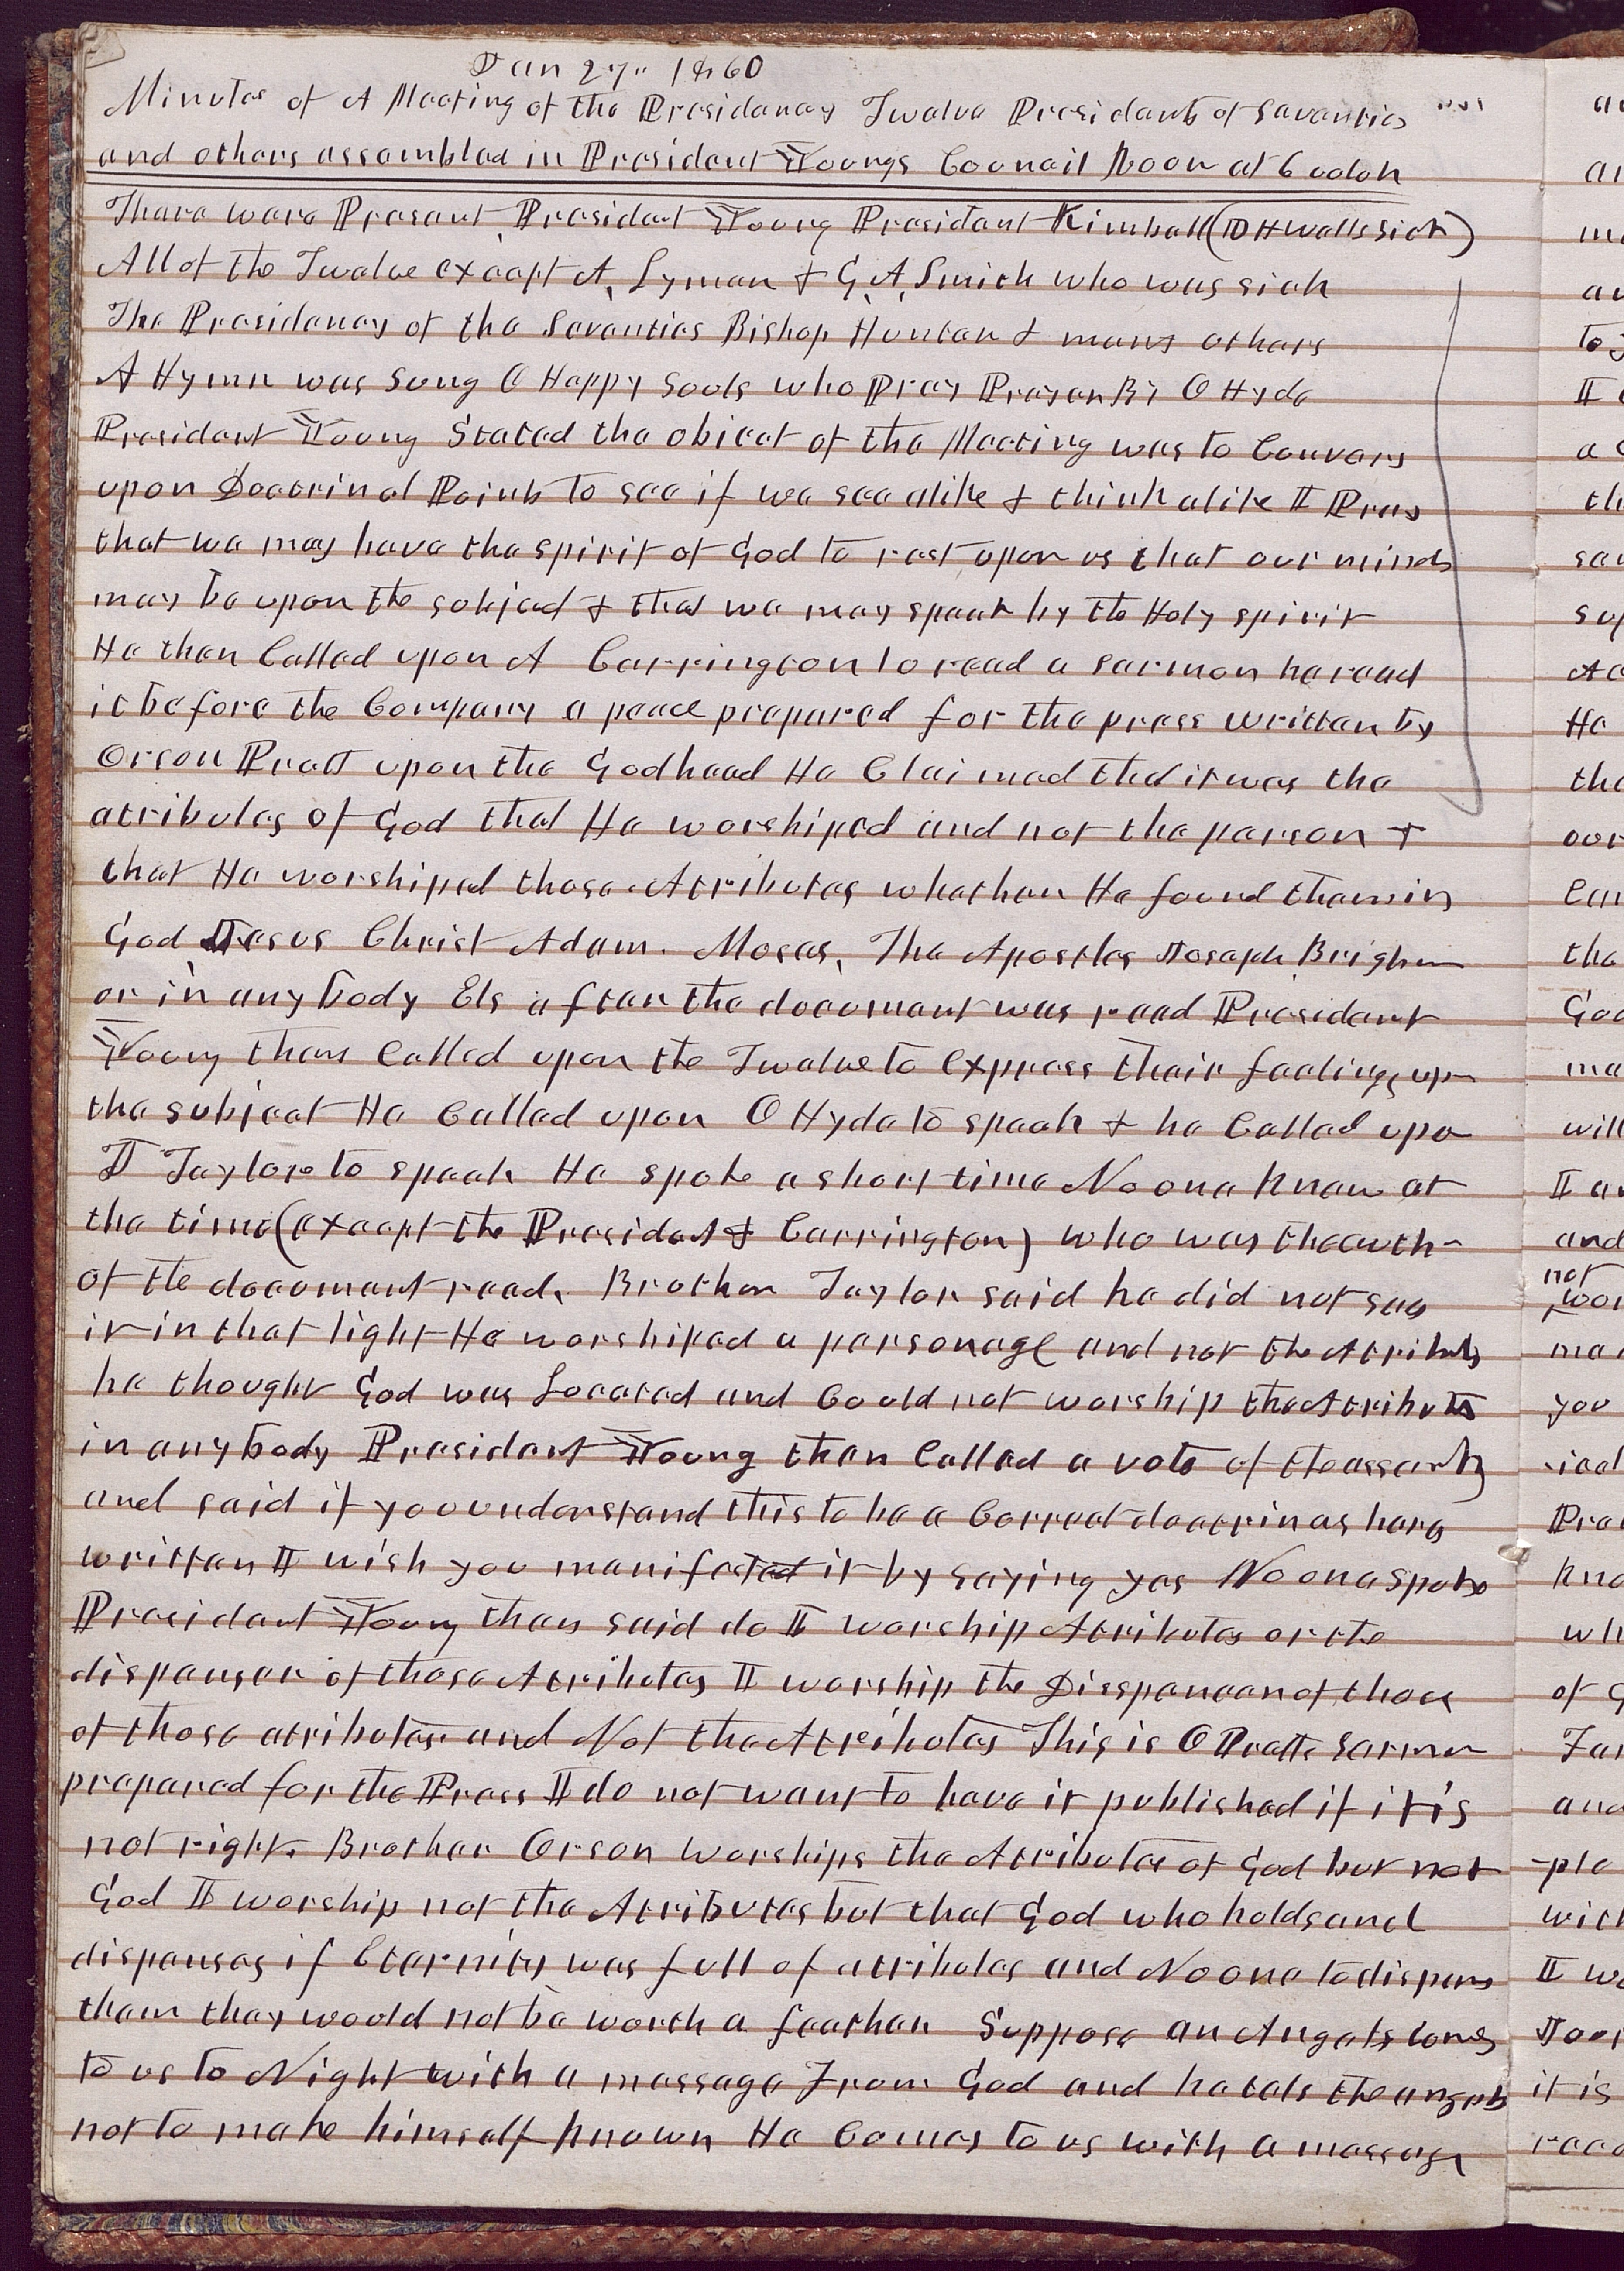 Jan 27" 1860
Minutes of A Meeting of the Presidency Twelve Presidents of Seventies
and others assembled in President Youngs Council Room at 6 oclok
There were Present, President Young President Kimball (D H Wells Sick)
All of the Twelve except A, Lyman & G, A, Smith who was sick
The Presidency of the Seventies Bishop Hunter & many others
A Hymn was Sung O Happy Souls who Pray Prayer By O Hyde
President Young Stated the object of the Meeting was to Convers
upon Doctrinal Points to see if we see alike & think alike I Pray
that we may have the spirit of God to rest upon us that our minds
may be upon the subject & that we may speak by the Holy spirit
He then Called upon A Carrington to read a sermon he read
it before the Company a peace prepared for the press written by
Orson Pratt upon the Godhead He Claimed that it was the
atributes of God that He worshiped and not the person &
that He worshiped those Atributes whether He found them in
God Jesus Christ Adam. Moses, The Apostles Joseph, Brigham
or in any body Els after the document was read President
Young then Called upon the Twelve to express their feelings upon
the subject He Called upon O Hyde to speak & he Called upon
J Taylore to speak He spoke a short time No one knew at
the time (except the President & Carrington) who was the auth-
of the document read. Brother Taylor said he did not see
it in that light He worshiped a personage and not the Attributs
he thought God was Located and Could not worship the Attributes
in any body President Young then Called a vote of the assembly
and said if you understand this to be a Correct doctrin as here
written I wish you manifested it by saying yes No one spoke
President Young then said do I worship Attributes or the
dispenser of those Attributes I worship the Disspencer of those
of those atributes and Not the Attributes This is O Pratts sermon
prepared for the Press I do not want to have it published if it is
not right. Brother Orson worships the Attributes of God but not
God I worship not the Attributes but that God who holds and
dispenses if Eternity was full of attributes and No one to dispens
them they would not be worth a feather Suppose an Angels comes
to us to Night with a message From God and he tels the angels
not to make himself known He Comes to us with a message